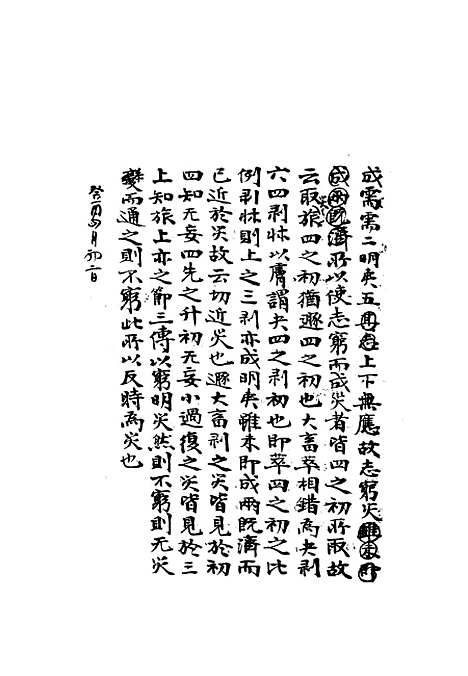 成需需二明夷五困□上下無應故志窮災雖未即
成兩既濟所以使志窮而成災者皆四之初所取故
云取旅四之初猶遯四之初也大畜萃相錯為夬剥
六四剥牀以膚謂夬四之剥初也即萃四之初之比
例剥牀則上之三剥亦成明夷雖未即成兩既濟而
已近於災故云切近災也遯大畜剥之災皆見於初
四知无妄四先之升初无妄小過復之災皆見於三
上知旅上亦之節三傳以窮明災然則不窮則无災
變而通之則不窮此所以反時為災也
癸酉四月初二日